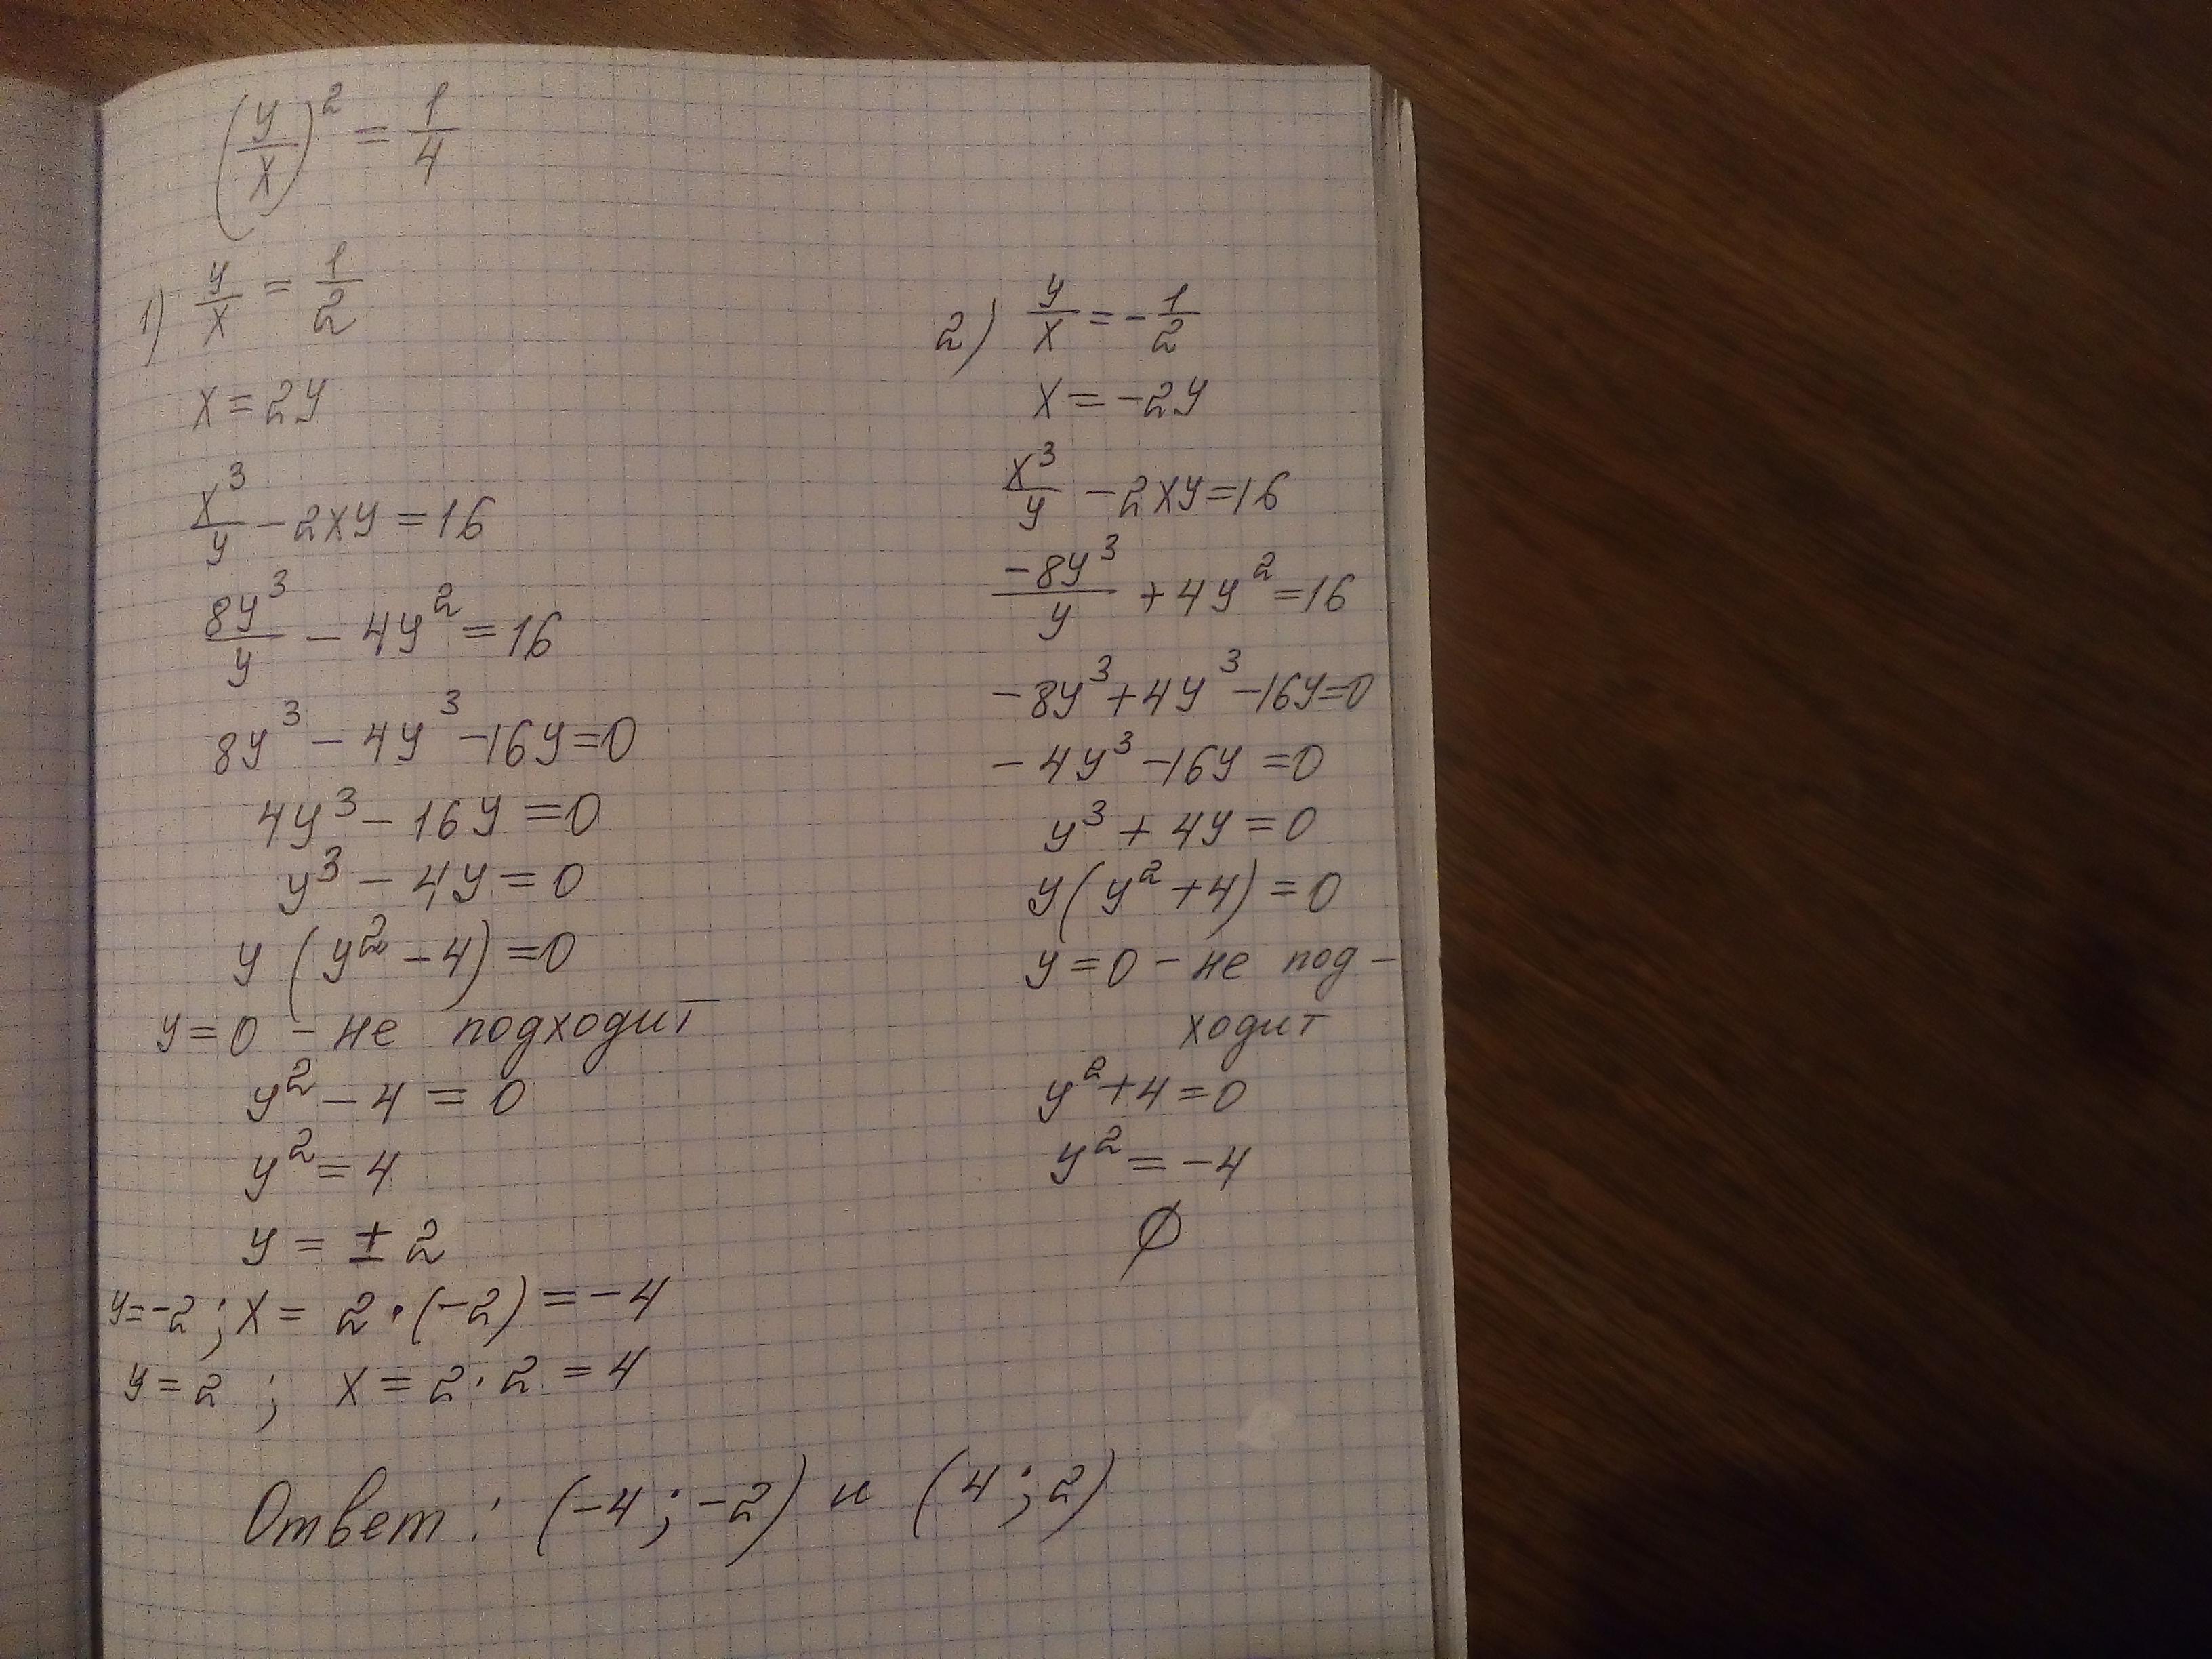 (y/x)² = 1/4
1) y/x = 1/2
x = 2y
x³/y - 2xy = 16
8y³/y - 4y² = 16
8y³ - 4y³ - 16y = 0
4y³ - 16y = 0
y³ - 4y = 0
y (y² - 4) = 0
y = 0 - не подходит
y² - 4 = 0
y² = 4
y = ± 2
y = -2 ; x = 2 · (-2) = -4
y = 2 ; x = 2 · 2 = 4
2) y/x = - 1/2
x = -2y
x³/y - 2xy = 16
-8y³/y + 4y² = 16
-8y³ + 4y³ - 16y = 0
-4y³ - 16y = 0
y³ + 4y = 0
y (y² + 4) = 0
y = 0 - не под-
ходит
y² + 4 = 0
y² = -4
∅
Ответ: (-4 ; -2) и (4 ; 2)